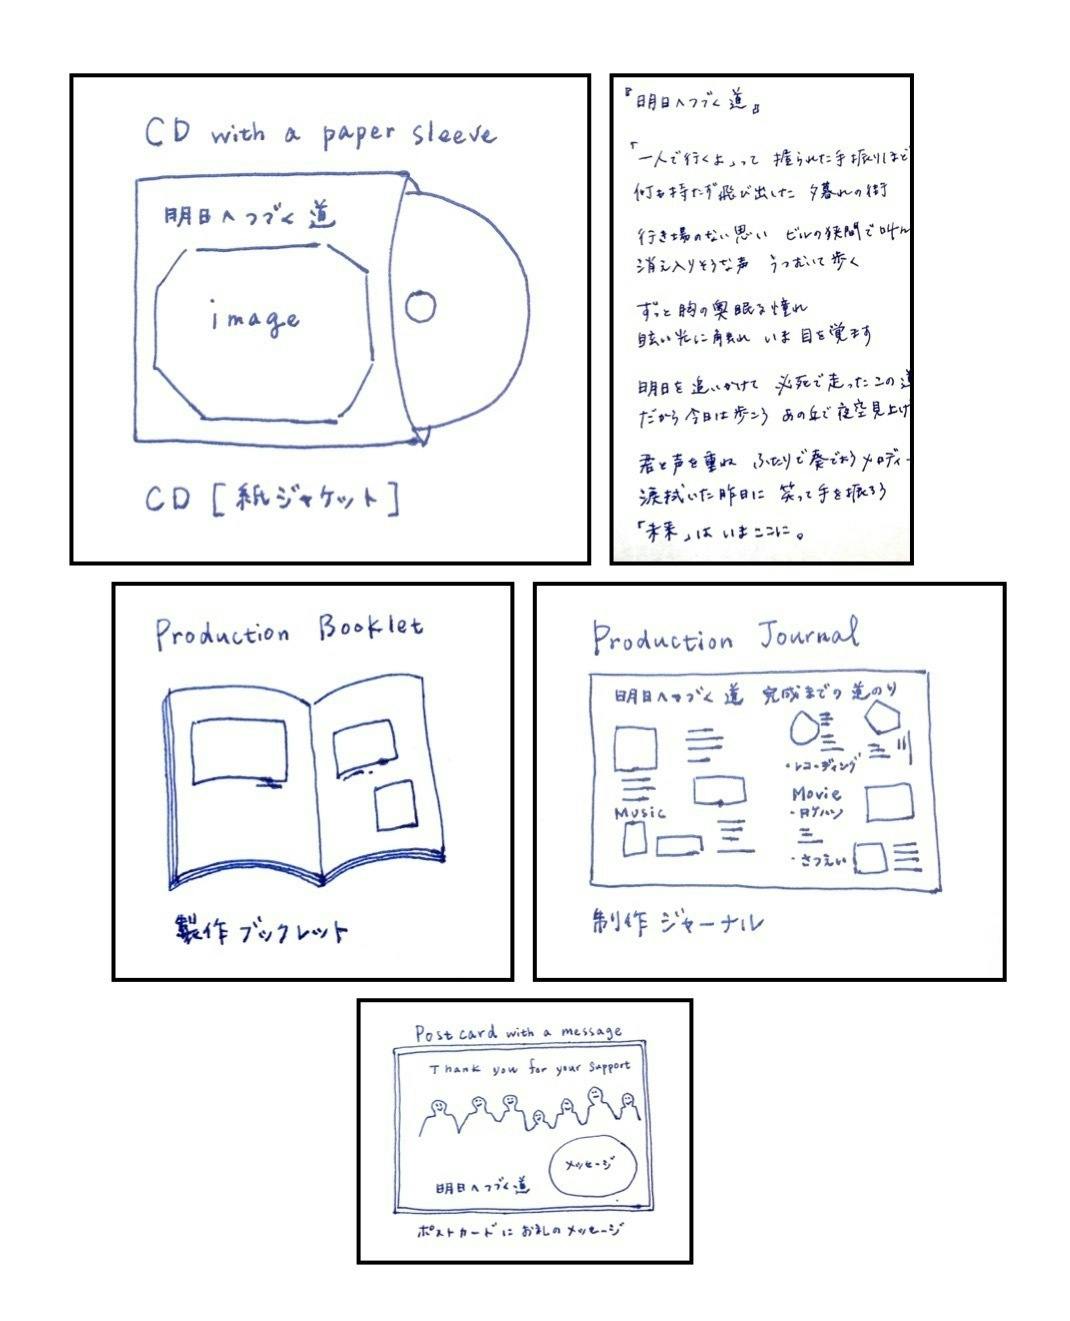 CD with a paper sleeve
明日へつづく道
image
CD [紙ジャケット]
『明日へつづく道』
「一人で行くよ」って 握られた手振りほど
何も持たず飛び出した 夕暮れの街
行き場のない思い ビルの狭間で叫ん
消え入りそうな声 うつむいて歩く
ずっと胸の奥眠る憧れ
眩い光に触れ いま 目を覚ます
明日を追いかけて 必死で走ったこの道
だから今日は歩こう あの丘で夜空見上げ
君と声を重ね ふたりで奏でおうメロディー
涙拭いた昨日に 笑って手を振ろう
「未来」は いまここに。
Production Booklet
製作ブックレット
Production Journal
明日へつづく道 完成までの道のり
・レコーディング
Music
Movie
・ロケハン
・さつえい
制作ジャーナル
Postcard with a message
Thank you for your support
メッセージ
明日へつづく道
ポストカードにお礼のメッセージ